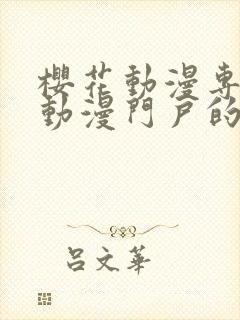 櫻花動漫專
動漫門戶的
呂文華